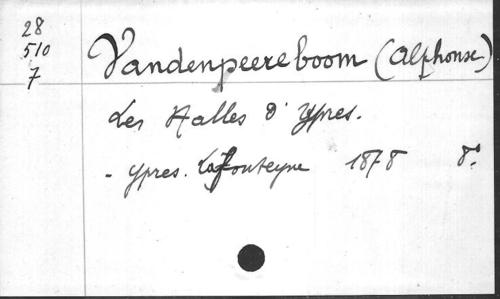 28
510
7
Vandenpeereboom (Alphonse)
Les Halles d'Ypres.
- Ypres. Lafonteyne 1878 8°